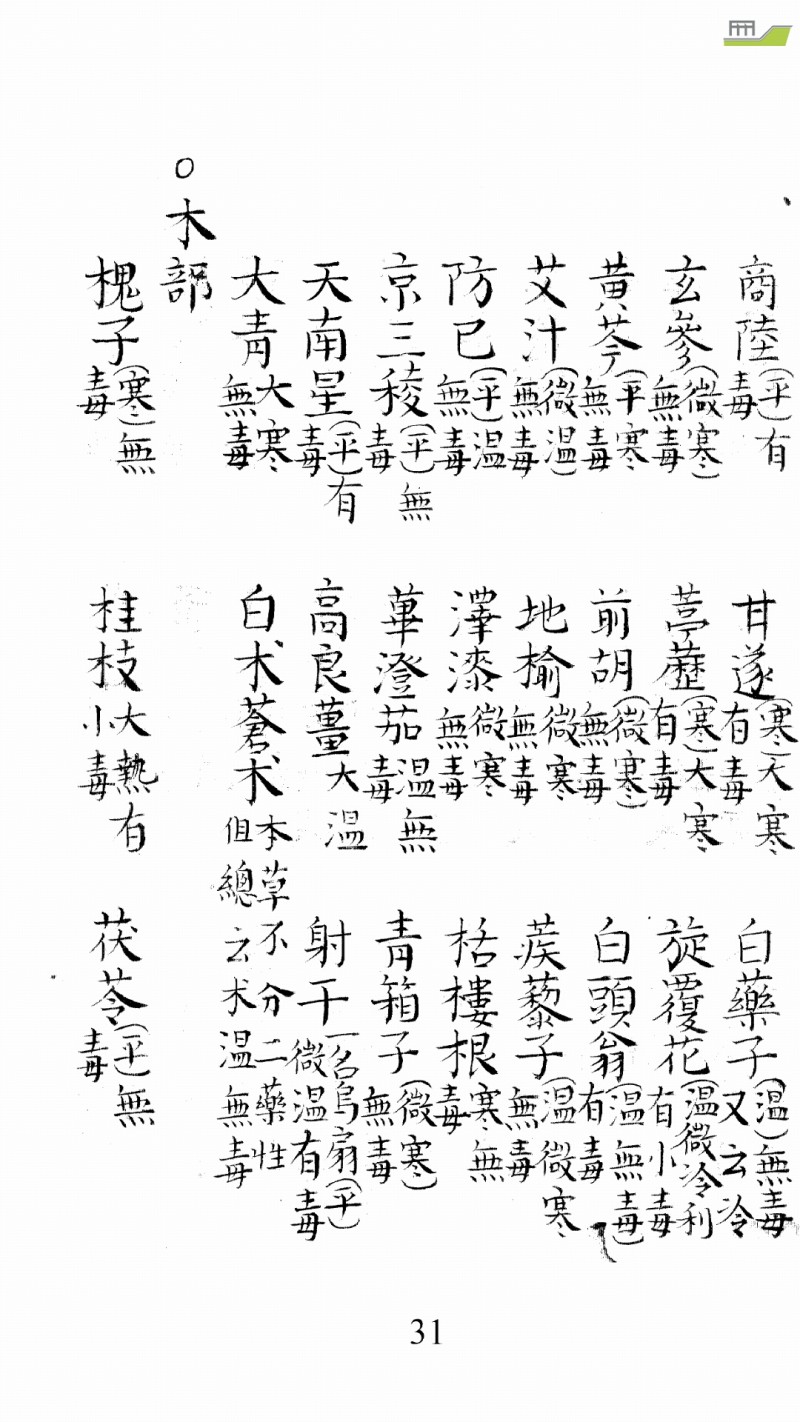 商陸(平)有毒 甘遂(寒)大寒有毒 白藥子(溫)無毒又云冷
玄參(微寒)無毒 葶藶(寒)大寒有毒 旋覆花(溫微冷利有小毒
黃芩(平寒無毒 前胡(微寒)無毒 白頭翁(溫無毒)有毒
艾汁(微溫)無毒 地榆微寒無毒 蒺藜子(溫微寒無毒
防已(平)溫無毒 澤漆微寒無毒 栝樓根寒無毒
京三稜(平)無毒 蓽澄茄溫無毒 青箱子(微寒)無毒
天南星(平)有毒 高良薑大溫 射干一名烏扇(平)微溫有毒
大青大寒無毒 白朮蒼朮本草不分二藥性但總云朮溫無毒
○木部
槐子(寒)無毒 桂枝大熱有小毒 茯苓(平)無毒
31